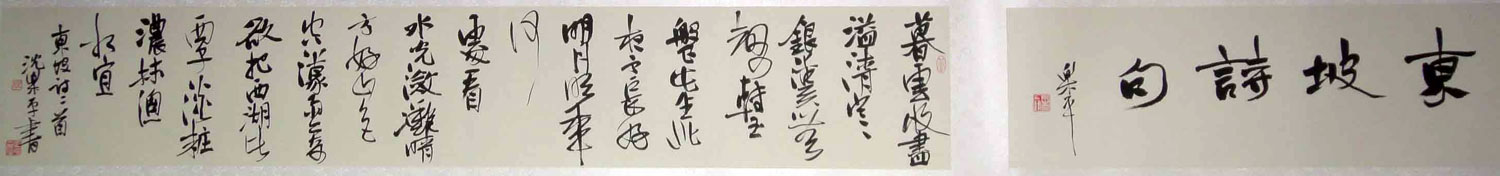 東坡詩句
暮雲收盡
溢清寒
銀漢無
聲轉玉
盤此生此
夜不長好
明月明年
何
處看
水光瀲灩晴
方好山色
空濛雨亦奇
欲把西湖比
西子淡粧
濃抹
相宜
東坡诗二首